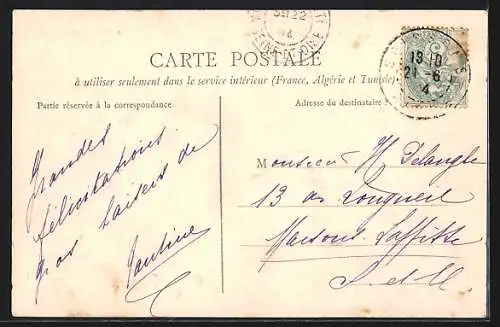 CARTE POSTALE
à utiliser seulement dans le service intérieur (France, Algérie et Tunisie)
Partie réservée à la correspondance
Adresse du destinataire
Grandes
félicitations
gros baisers de
Pauline
Monsieur H. Delangle
13 av Longueil
Maisons Laffitte
S. et O.
22
19 10
21 -6
4